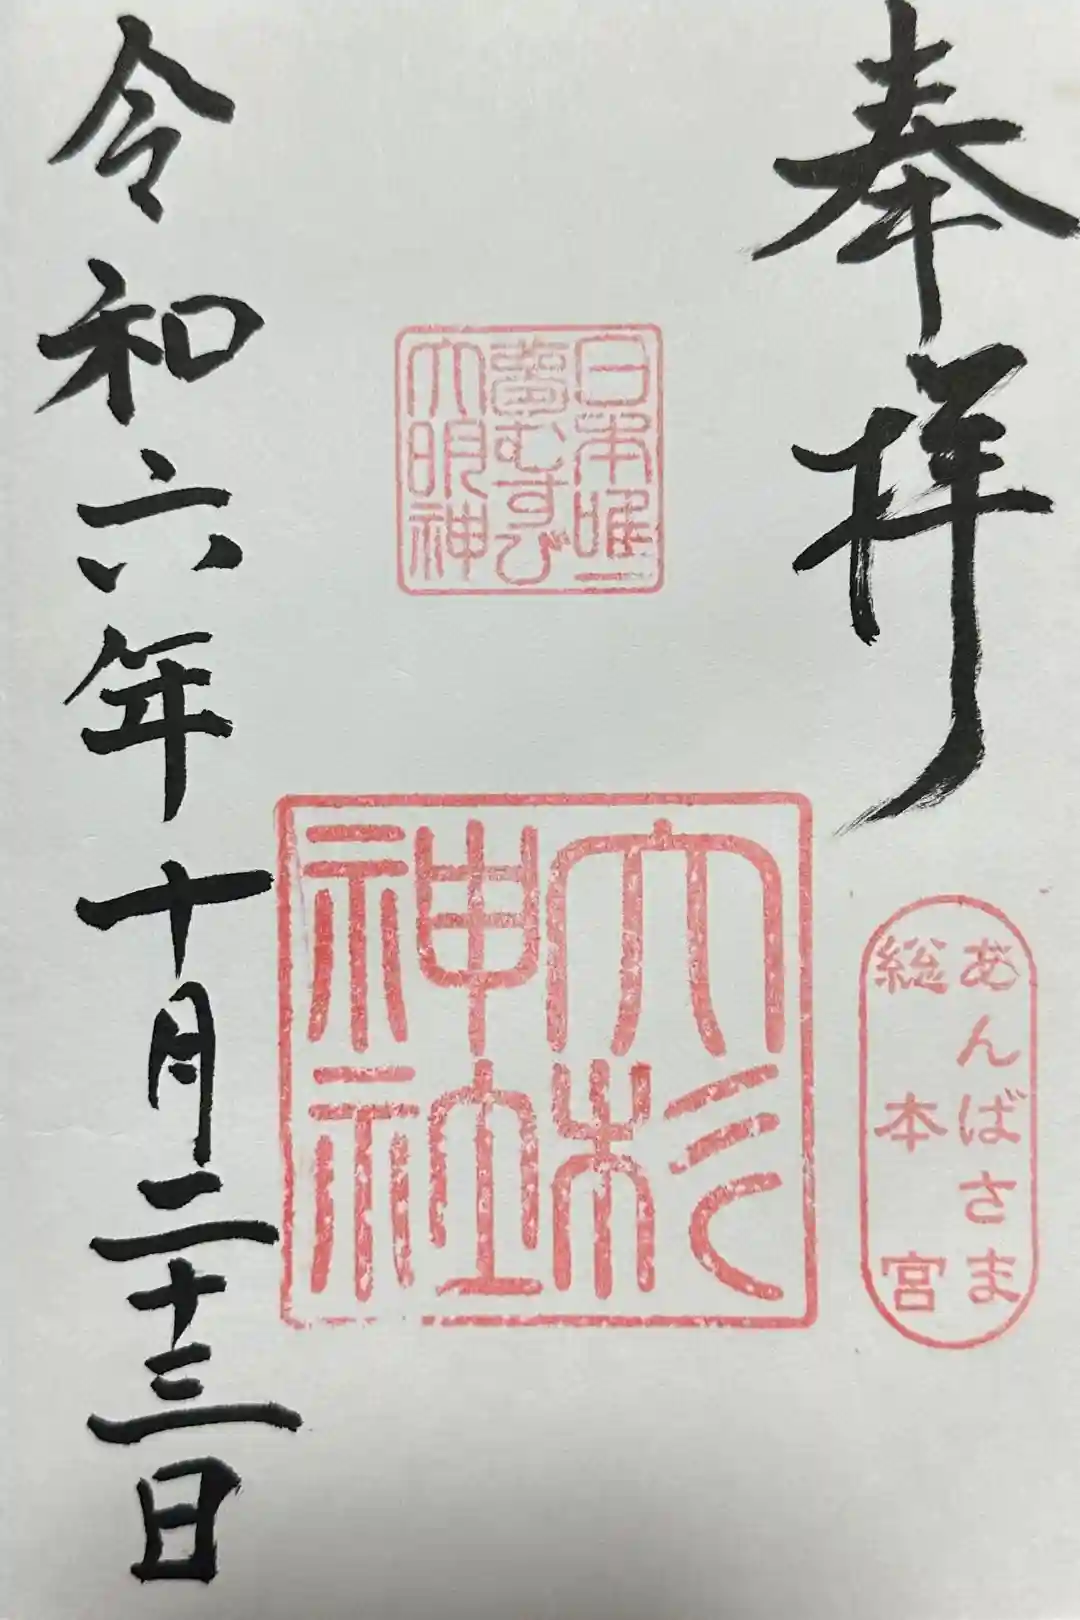 奉拝
日本唯一
夢むすび
大明神
あんばさま
総本宮
大杉
神社
令和六年十月二十三日